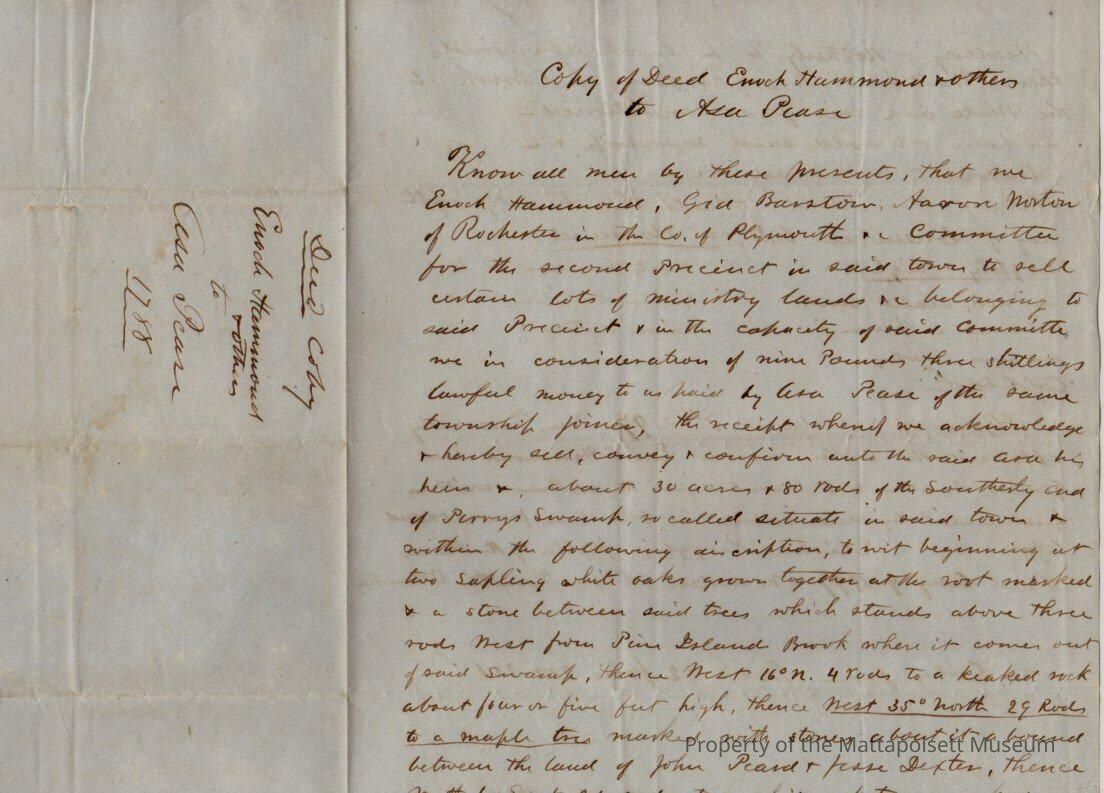 Deed Copy
Enoch Hammond
& others
to
Asa Pease
1788
Copy of Deed Enoch Hammond & others
to Asa Pease
Know all men by these presents, that we
Enoch Hammond, Gid Barstow, Aaron Norton
of Rochester in the Co. of Plymouth &c Committee
for the second Precinct in said town to sell
certain lots of ministry lands &c belonging to
said Precinct & in the capacity of said Committe
we in consideration of nine Pounds three shillings
lawful money to us paid by Asa Pease of the same
township joiner, the receipt whereof we acknowledge
& hereby sell, convey & confirm unto the said Asa his
heirs &, about 30 acres & 80 rods of the Southerly end
of Perrys Swamp, so called situate in said town &
within the following discription, to wit beginning at
two sapling white oaks grown together at the root marked
& a stone between said trees which stands above three
rods West from Pine Island Brook where it comes out
of said Swamp, thence West 16° N. 4 rods to a peaked rock
about four or five feet high, thence West 35° North 29 Rods
to a maple tree marked with stones about it a bound
between the land of John & Jesse Dexter, thence
Property of the Mattapoisett Museum